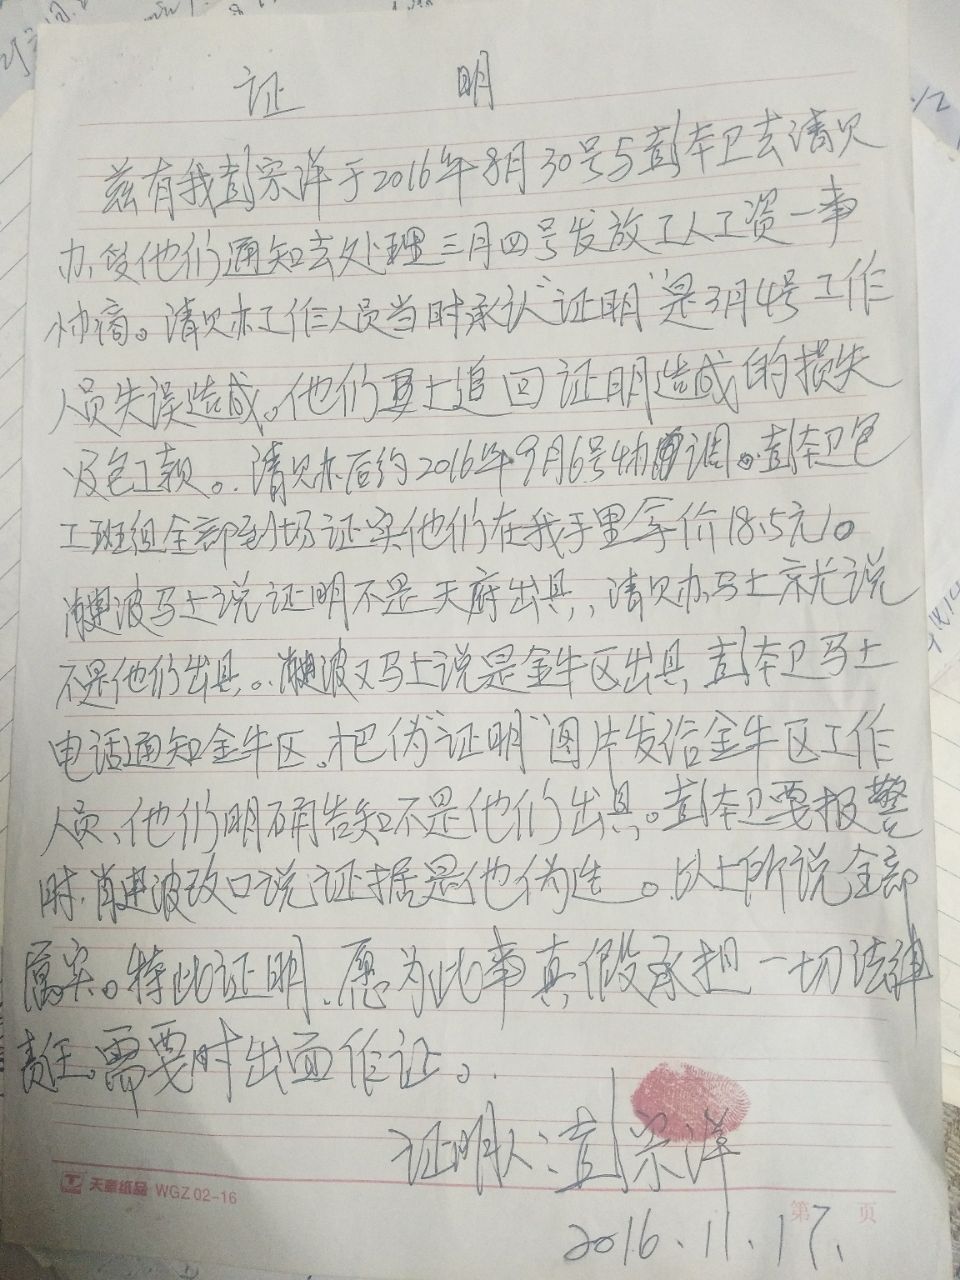 证 明
兹有我彭宗洋于2016年8月30号与彭本卫去清欠
办,受他们通知去处理三月四号发放工人工资一事
协商。清欠办工作人员当时承认“证明”是3月4号工作
人员失误造成。他们要士追回证明造成的损失
及包工款。清欠办后约2016年9月6号协调。彭本卫包
工班组全部到场证实他们在我手里拿价18.5元/。
肖建波马上说证明不是天府出具,清欠办马上就说
不是他们出具。肖建波又马上说是金牛区出具,彭本卫马上
电话通知金牛区。把伪“证明”图片发给金牛区工作
人员、他们明确告知不是他们出具。彭本卫要报警
时,肖建波改口说证据是他伪造。以上所说全部
属实。特此证明,愿为此事真假承担一切法律
责任。需要时出面作证。
证明人:彭宗洋
天章纸品 WGZ 02-16
第 页
2016.11.17.